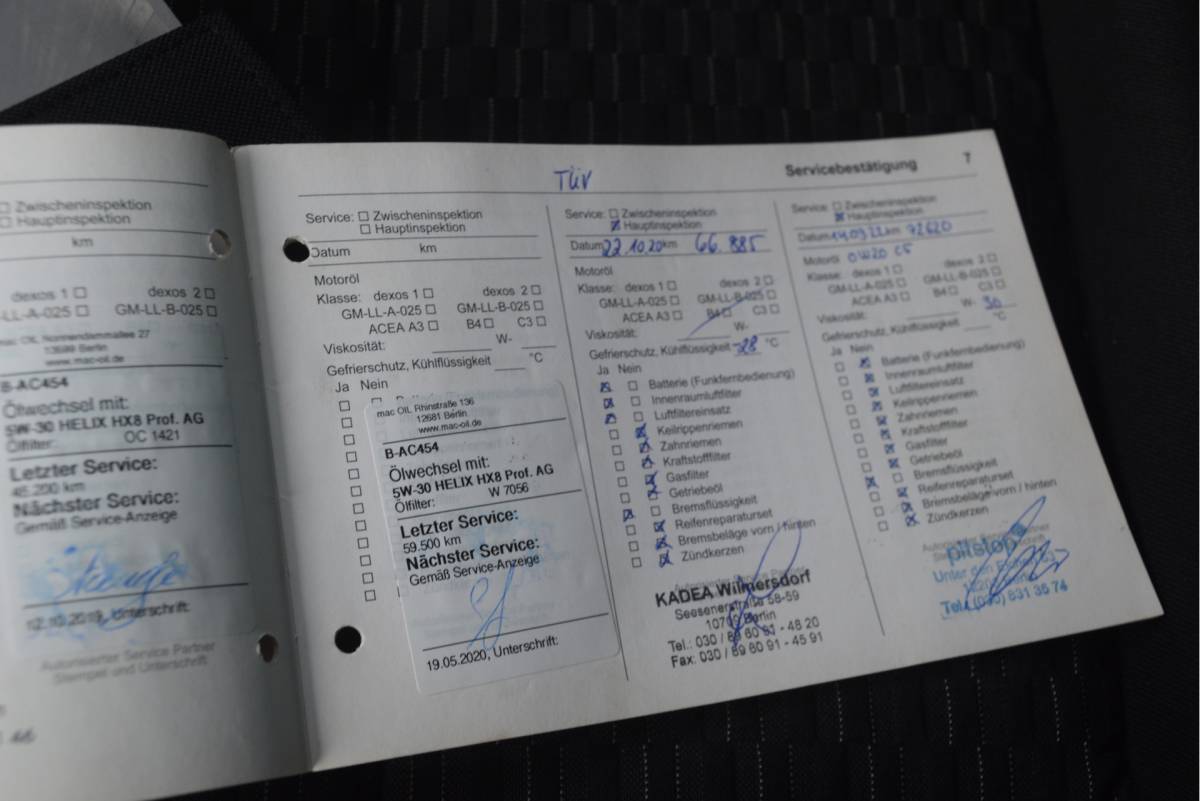 Zwischeninspektion
Hauptinspektion
km
dexos 1 dexos 2
-LL-A-025 GM-LL-B-025
mac OIL Nonnendammallee 27
13599 Berlin
www.mac-oil.de
B-AC454
Ölwechsel mit:
5W-30 HELIX HX8 Prof. AG
Ölfilter: OC 1421
Letzter Service:
45.200 km
Nächster Service:
Gemäß Service-Anzeige
12.10.2019, Unterschrift:
Autorisierter Service Partner
Stempel und Unterschrift
46
Servicebestätigung 7
Service: Zwischeninspektion
Hauptinspektion
Datum km
Motoröl
Klasse: dexos 1 dexos 2
GM-LL-A-025 GM-LL-B-025
ACEA A3 B4 C3
Viskosität: W-
Gefrierschutz, Kühlflüssigkeit °C
Ja Nein
mac OIL Rhinstraße 136
12681 Berlin
www.mac-oil.de
B-AC454
Ölwechsel mit:
5W-30 HELIX HX8 Prof. AG
Ölfilter: W 7056
Letzter Service:
59.500 km
Nächster Service:
Gemäß Service-Anzeige
19.05.2020, Unterschrift:
TÜV
Service: Zwischeninspektion
Hauptinspektion
Datum 22.10.20 km 66.885
Motoröl
Klasse: dexos 1 dexos 2
GM-LL-A-025 GM-LL-B-025
ACEA A3 B4 C3
Viskosität: W-
Gefrierschutz, Kühlflüssigkeit -28 °C
Ja Nein
Batterie (Funkfernbedienung)
Innenraumluftfilter
Luftfiltereinsatz
Keilrippenriemen
Zahnriemen
Kraftstofffilter
Gasfilter
Getriebeöl
Bremsflüssigkeit
Reifenreparaturset
Bremsbeläge vorn / hinten
Zündkerzen
Autorisierter Service Partner
KADEA Wilmersdorf
Seesener Straße 58-59
10709 Berlin
Tel.: 030 / 89 60 91 - 48 20
Fax: 030 / 89 60 91 - 45 91
Service: Zwischeninspektion
Hauptinspektion
Datum 14.09.22 km 72620
Motoröl 0W20 C5
Klasse: dexos 1 dexos 2
GM-LL-A-025 GM-LL-B-025
ACEA A3 B4 C3
Viskosität: W- 30
Gefrierschutz, Kühlflüssigkeit °C
Ja Nein
Batterie (Funkfernbedienung)
Innenraumluftfilter
Luftfiltereinsatz
Keilrippenriemen
Zahnriemen
Kraftstofffilter
Gasfilter
Getriebeöl
Bremsflüssigkeit
Reifenreparaturset
Bremsbeläge vorn / hinten
Zündkerzen
Autorisierter Service Partner
pitstop
Unter den Eichen
Tel.: (030) 831 35 74